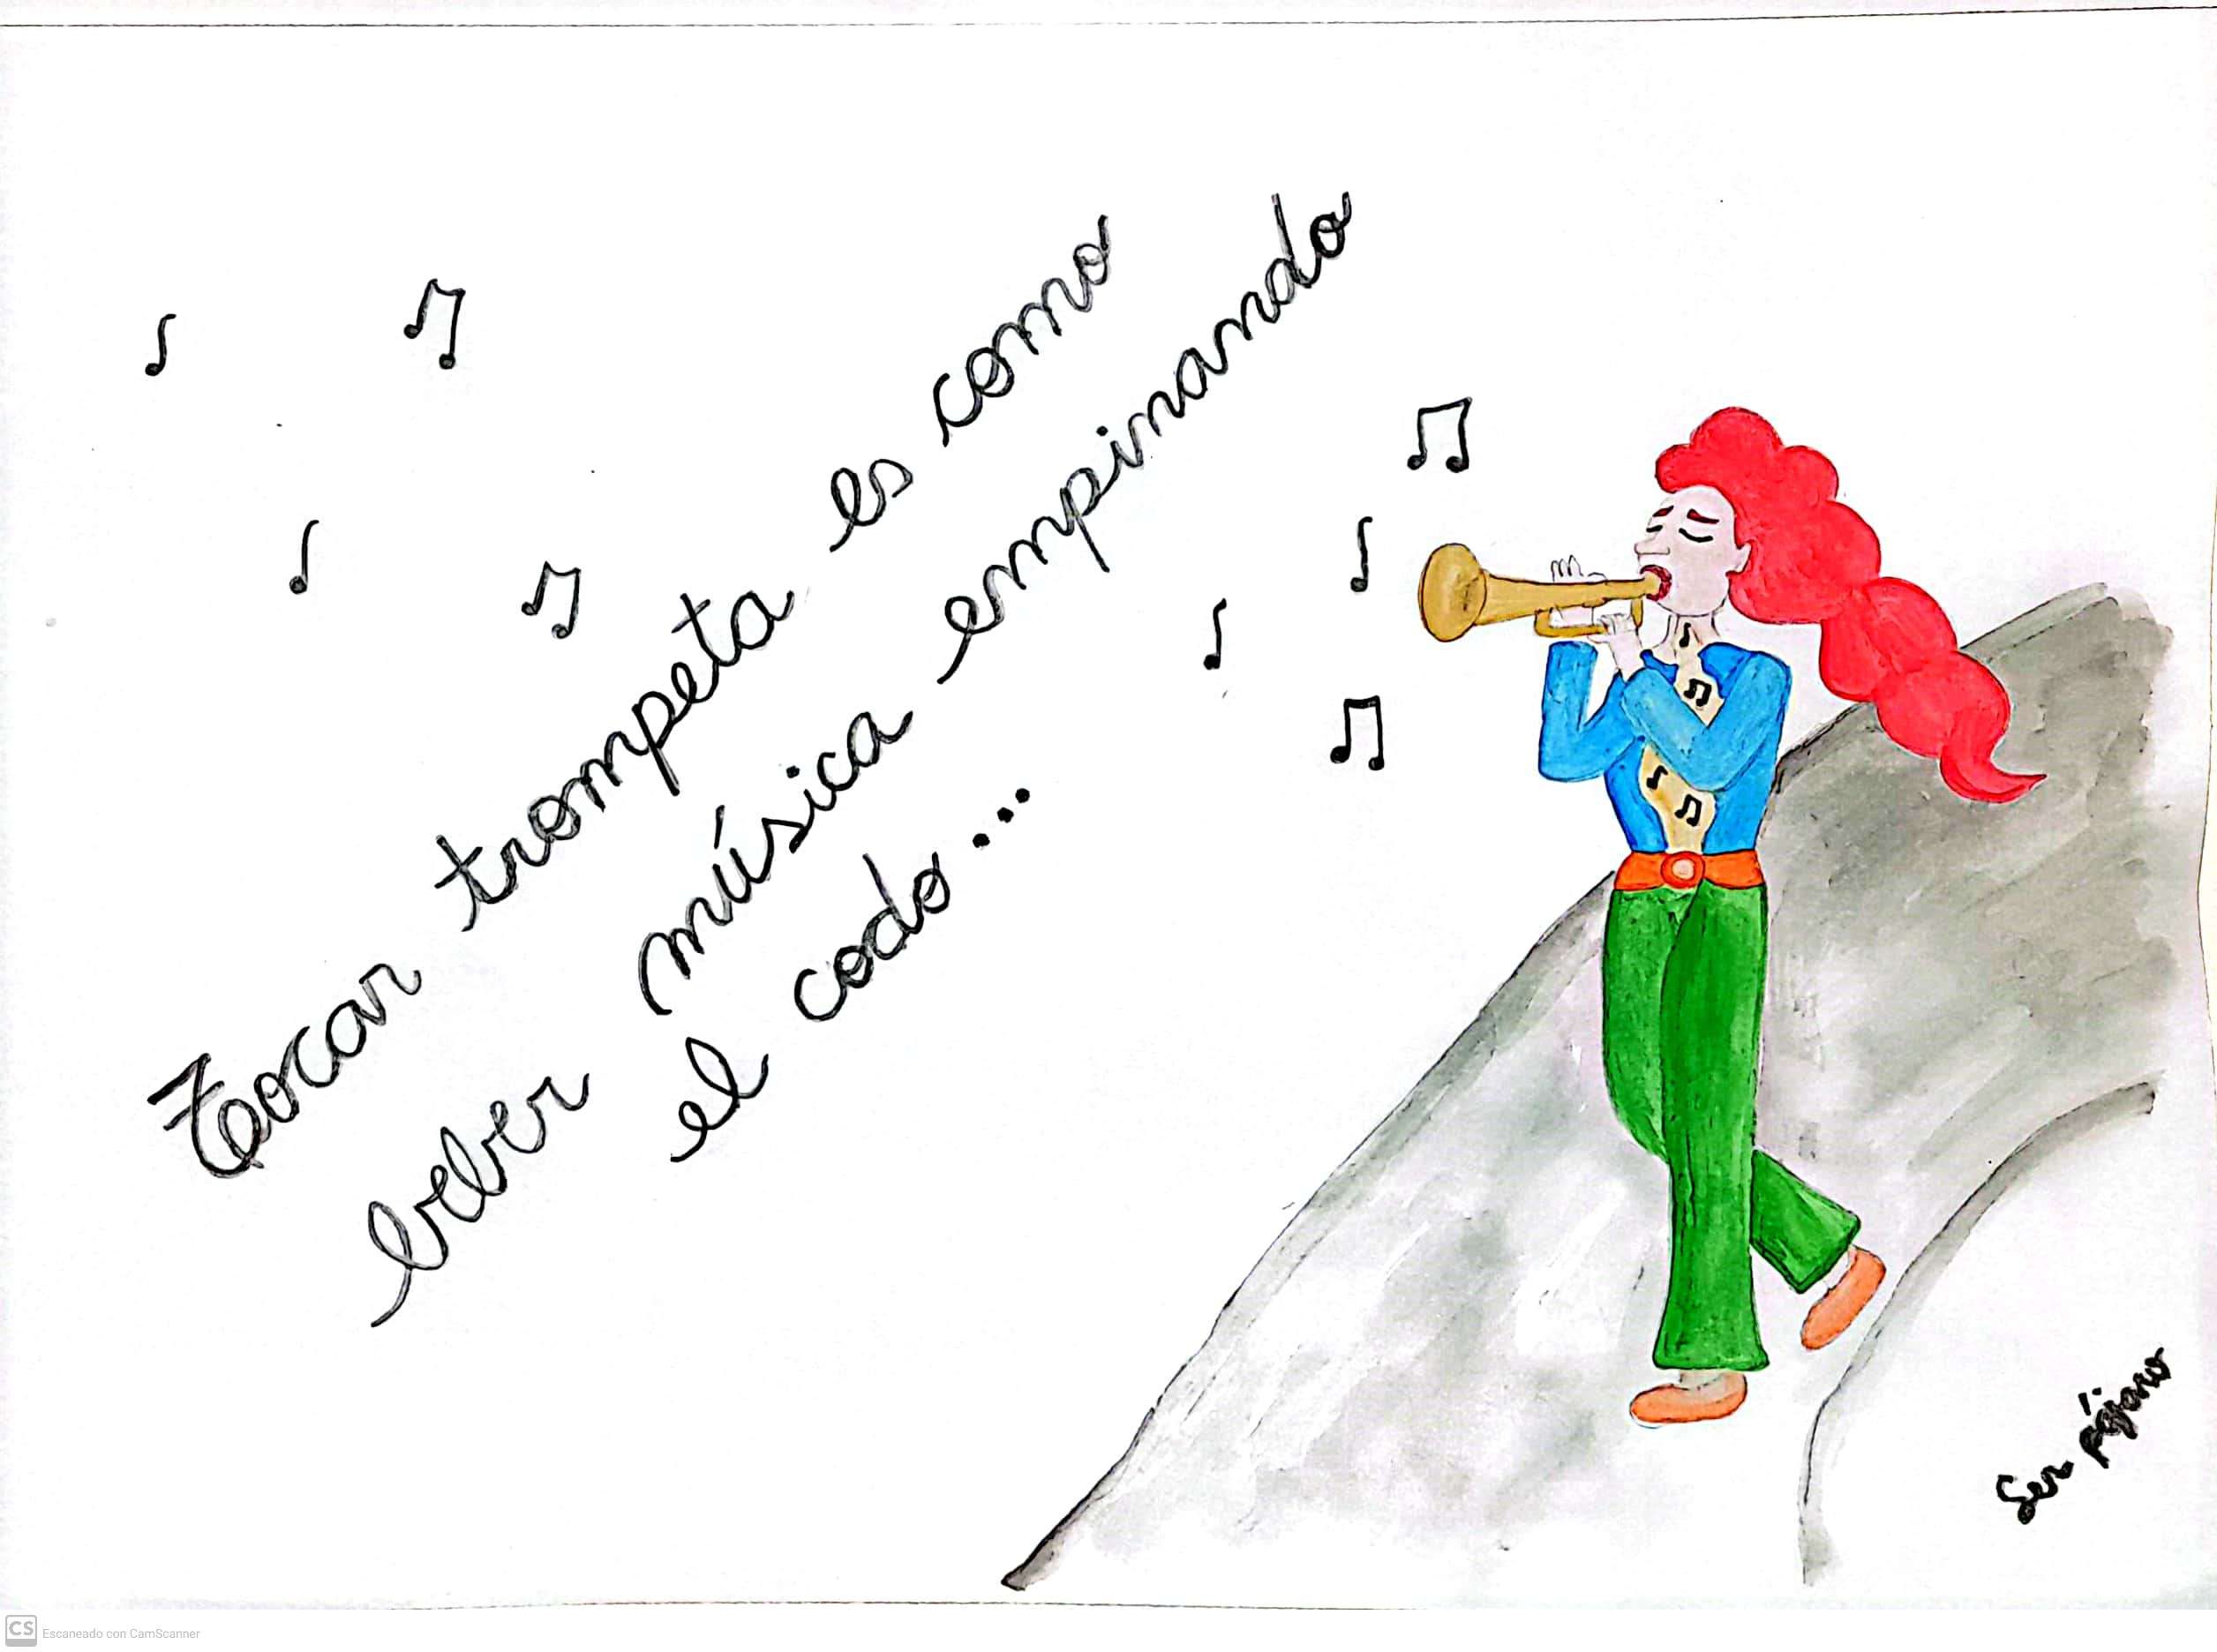 Tocar trompeta es como
beber música empinando
el codo...
Ser pájaro
CS Escaneado con CamScanner